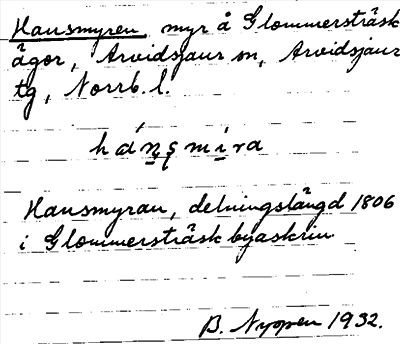 Hansmyren, myr å Glommersträsk
ägor, Arvidsjaur sn, Arvidsjaur
tg, Norrb. l.
hánsmíra
Hansmyran, delningslängd 1806
i Glommersträsk byaskrin
B. Nyopen 1932.